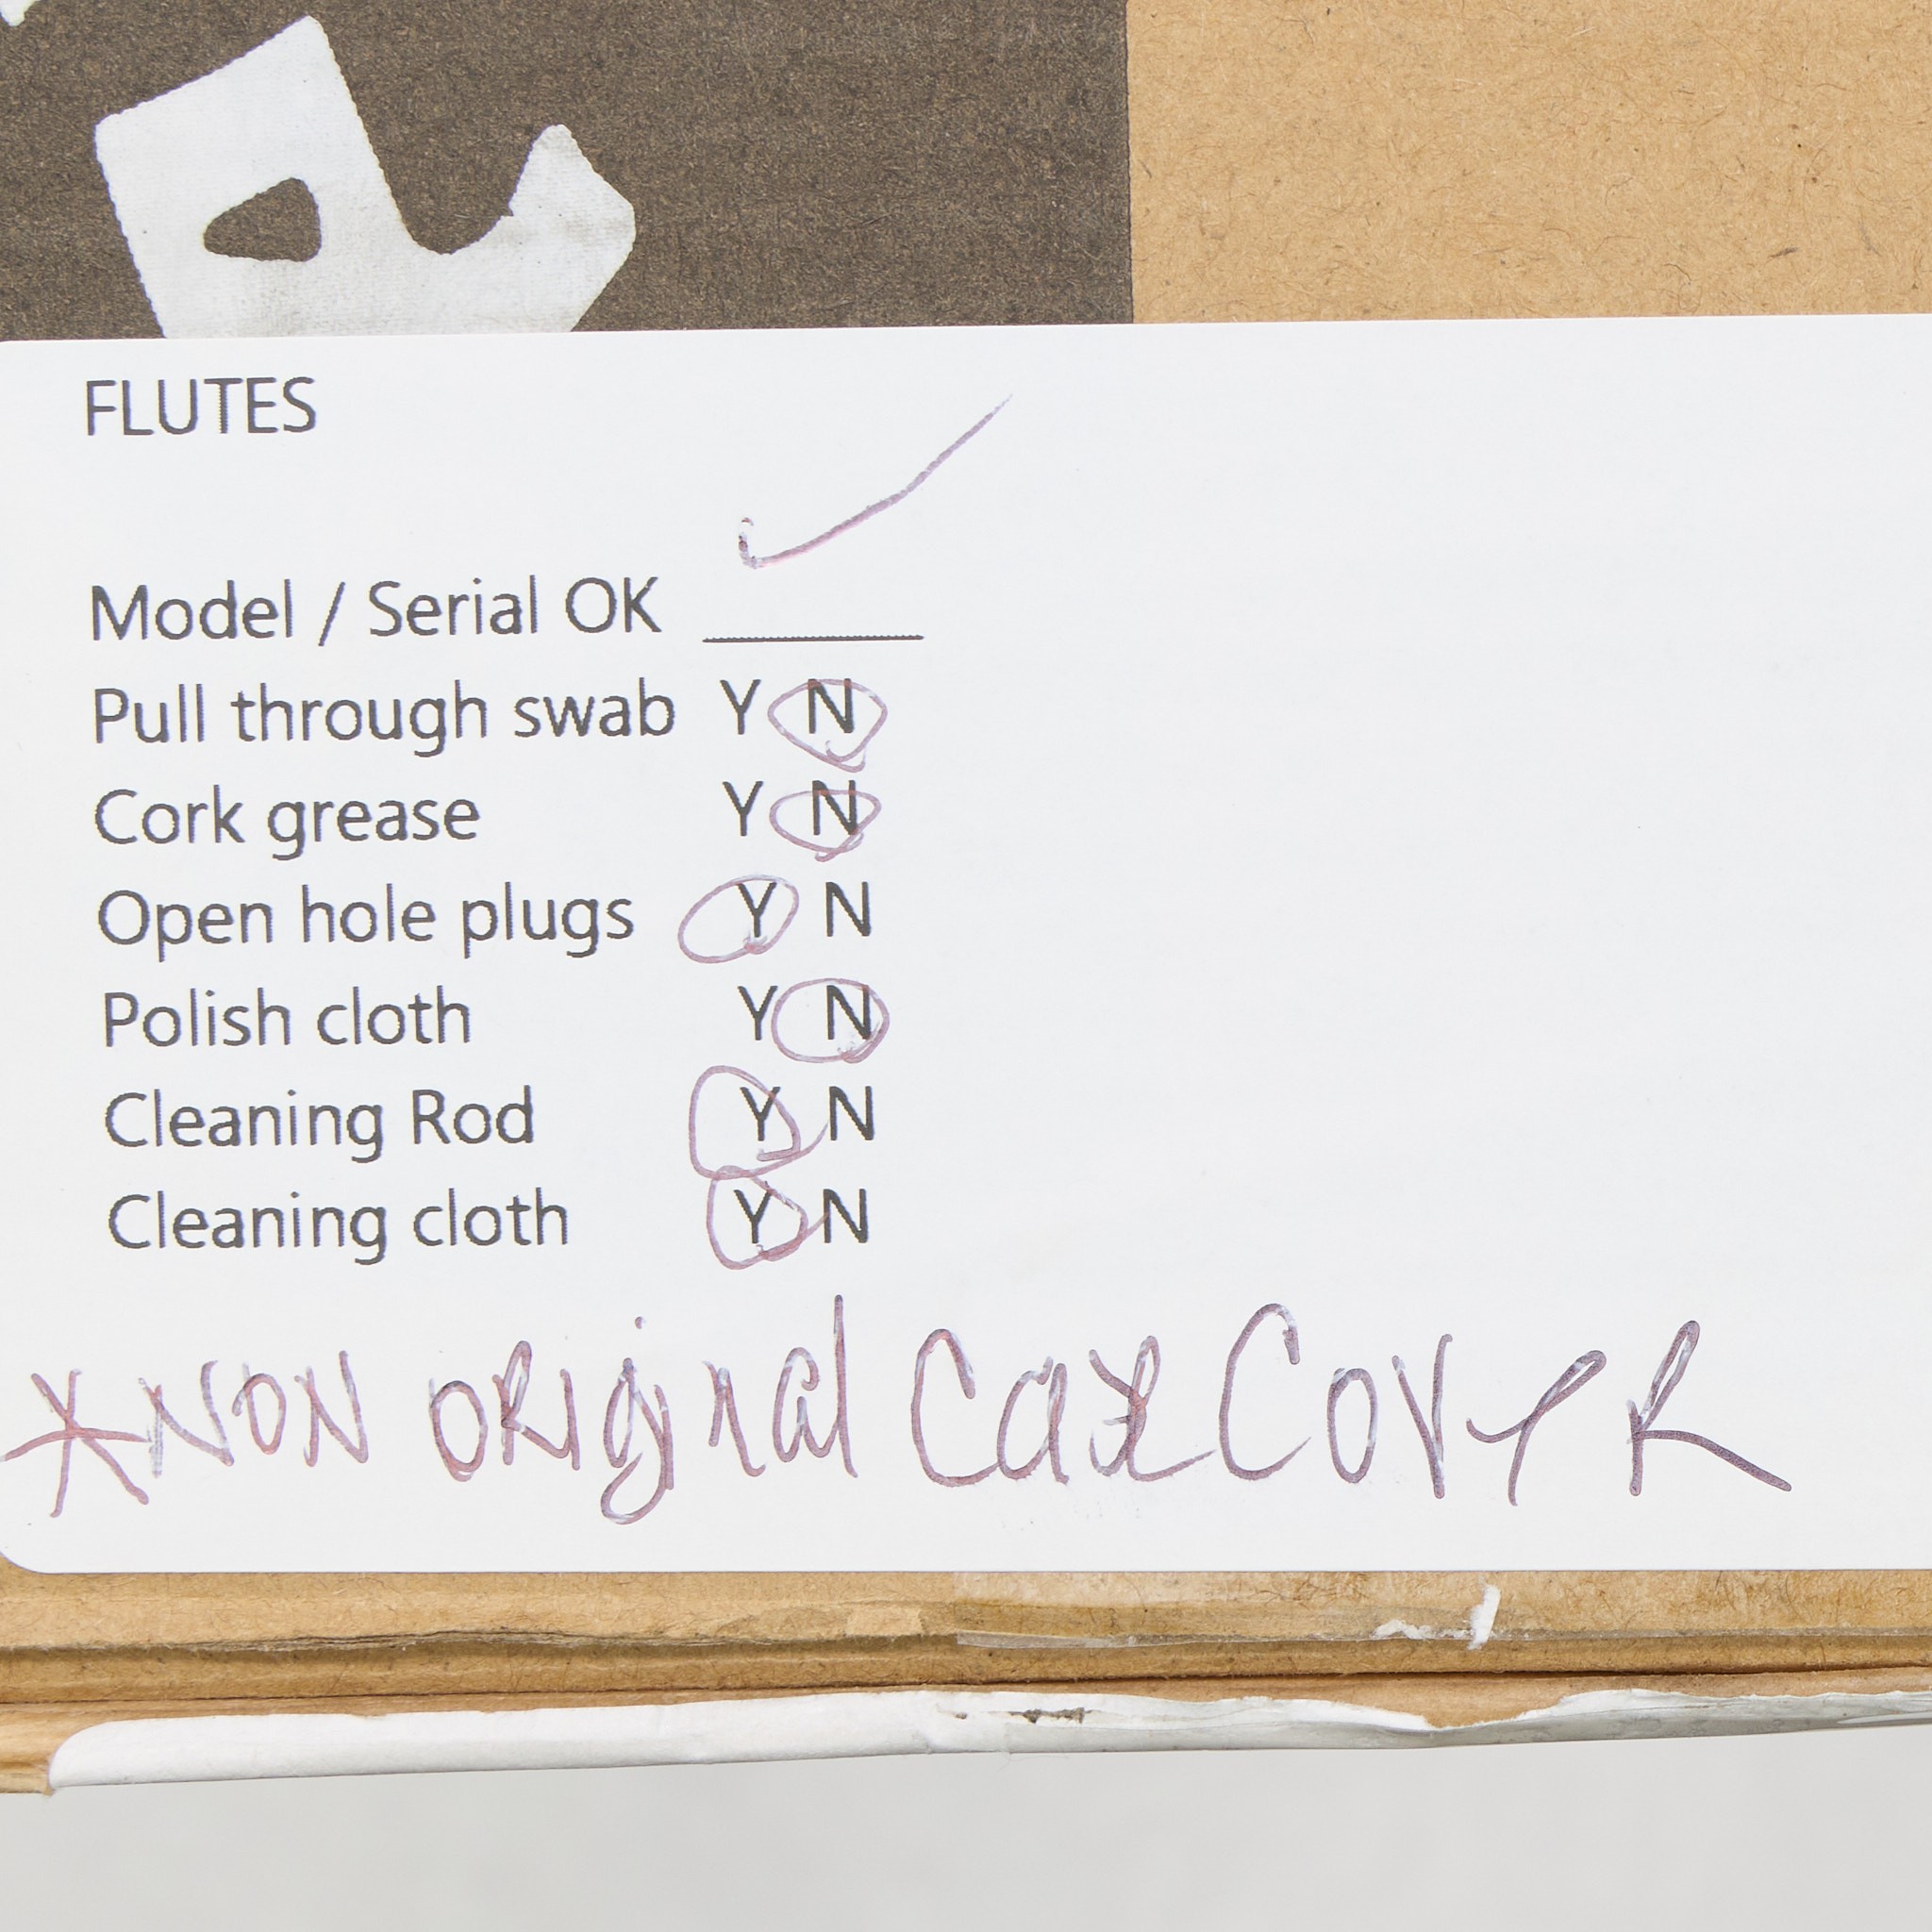 FLUTES
Model / Serial OK ______
Pull through swab Y N
Cork grease Y N
Open hole plugs Y N
Polish cloth Y N
Cleaning Rod Y N
Cleaning cloth Y N
*NON ORIginal Case COVeR